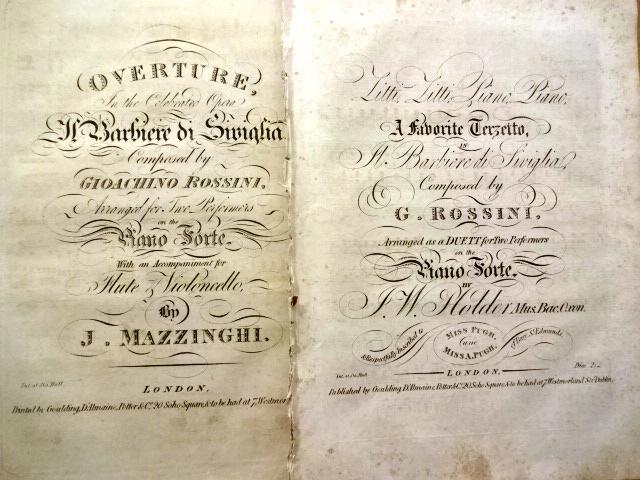 OVERTURE,
In the Celebrated Opera
Il Barbiere di Siviglia
Composed by
GIOACHINO ROSSINI,
Arranged for Two Performers
on the
Piano Forte.
With an Accompaniment for
Flute & Violoncello,
By
J. MAZZINGHI.
Ent. at Sta. Hall.
LONDON,
Printed by Goulding, D'Almaine, Potter & Co. 20 Soho Square, & to be had at 7, Westmor
Zitti, Zitti, Piano, Piano,
A Favorite Terzetto,
IN
Il Barbiere di Siviglia,
Composed by
G. ROSSINI,
Arranged as a DUETT for Two Performers
on the
Piano Forte.
BY
J. W. Holder, Mus. Bac. Oxon.
& Respectfully Inscribed to
MISS PUGH,
and
MISS A. PUGH,
Bury St. Edmunds.
Ent. at Sta. Hall.
Price
LONDON,
Published by Goulding, D'Almaine, Potter & Co. 20 Soho Square, & to be had at 7, Westmorland Str. Dublin.